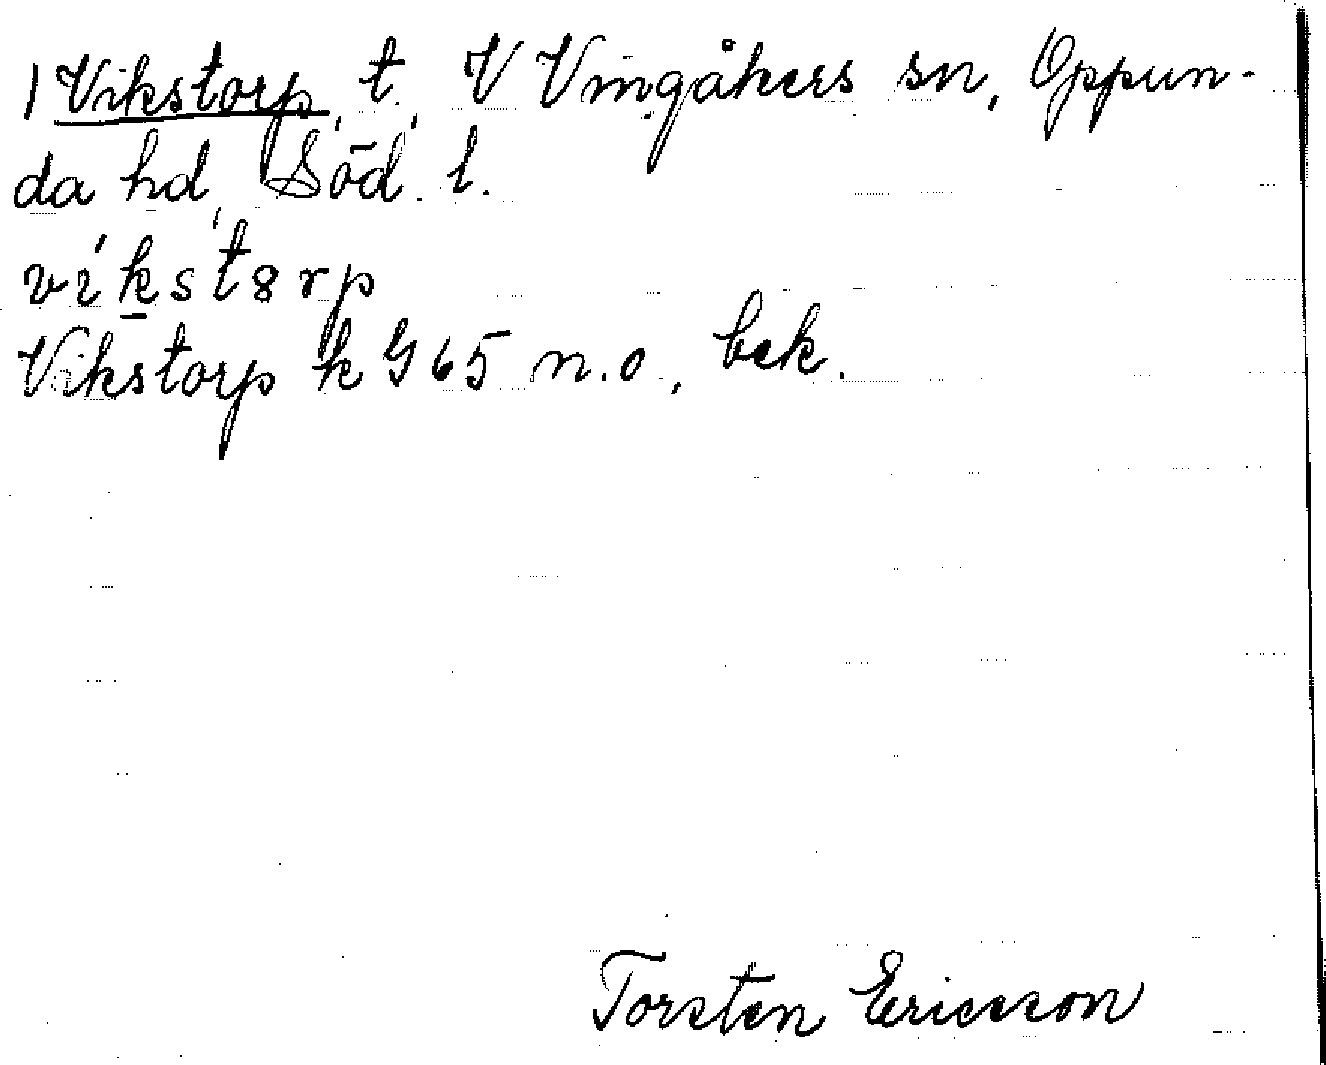 1 Vikstorp, t., V Vingåkers sn, Oppun-
da hd, Söd. l.
víkst8rp
Vikstorp k G 65 n.o., bek.
Torsten Ericsson